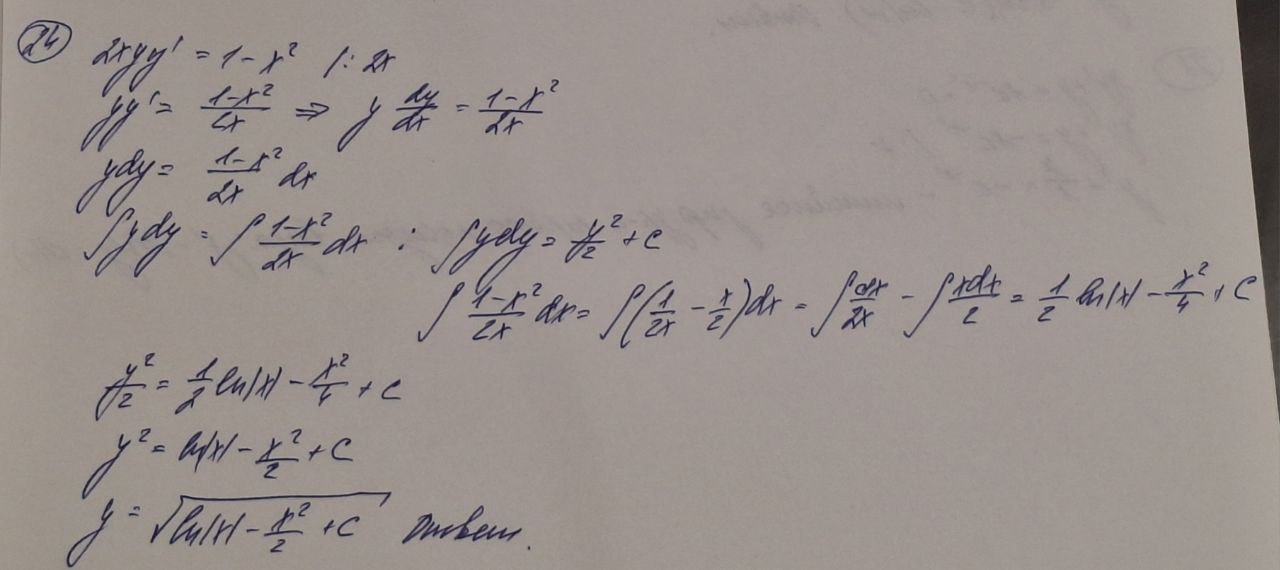 24
2xyy' = 1-x² |: 2x
yy' = \frac{1-x²}{2x} ⇒ y \frac{dy}{dx} = \frac{1-x²}{2x}
ydy = \frac{1-x²}{2x} dx
∫ydy = ∫\frac{1-x²}{2x} dx ; ∫ydy = \frac{y²}{2} + C
∫\frac{1-x²}{2x} dx = ∫(\frac{1}{2x} - \frac{x}{2})dx = ∫\frac{dx}{2x} - ∫\frac{xdx}{2} = \frac{1}{2} ln|x| - \frac{x²}{4} + C
\frac{y²}{2} = \frac{1}{2} ln|x| - \frac{x²}{4} + C
y² = ln|x| - \frac{x²}{2} + C
y = \sqrt{ln|x| - \frac{x²}{2} + C} Ответ.